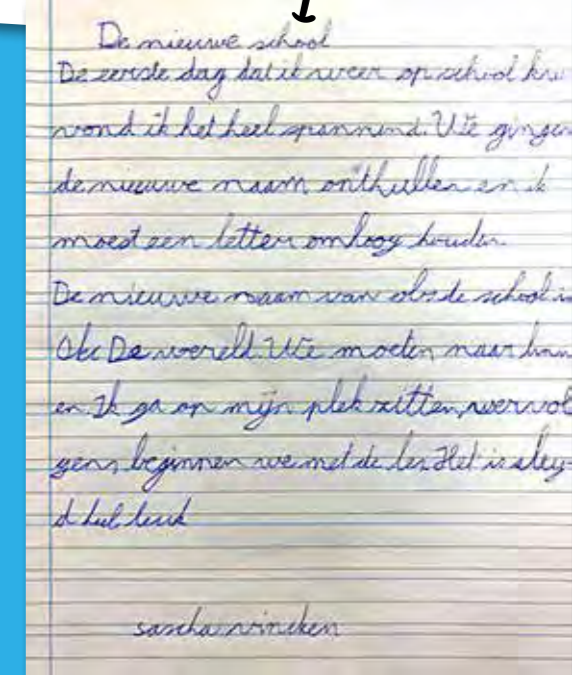 De nieuwe school
De eerste dag dat ik weer op school kw
vond ik het heel spannend. We gingen
de nieuwe naam onthullen en ik
moest een letter omhoog houden.
De nieuwe naam van obs de school is
Obc De wereld. We moeten naar binn
en Ik ga op mijn plek zitten, vervol
gens beginnen we met de les. Het is
d heel leuk
sascha vincken